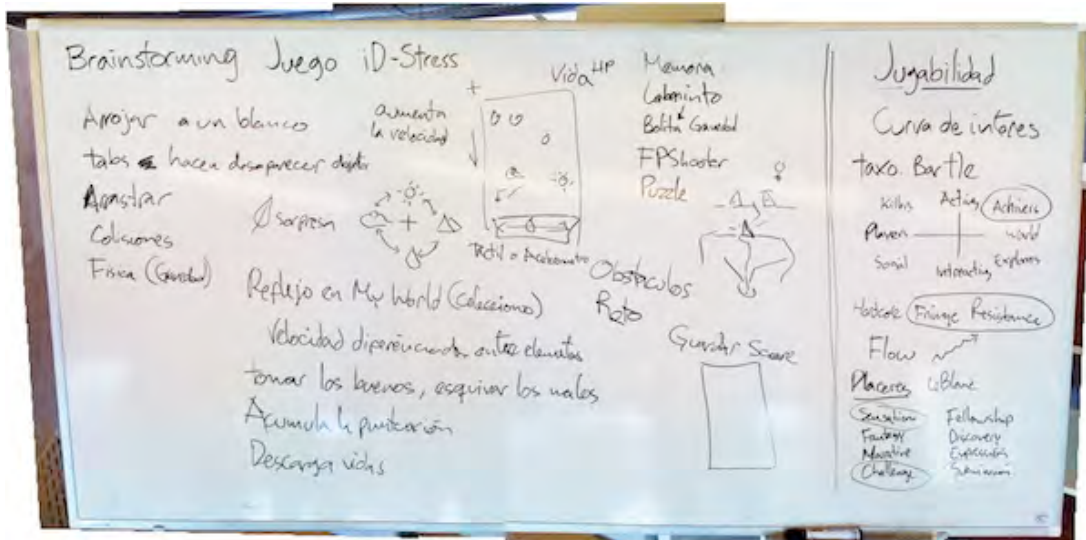 Brainstorming Juego iD-Stress
Arrojar a un blanco
tabs hacen desaparecer
Arrastrar
Colisiones
Física (Gravedad)
aumenta
la velocidad
+
Vida HP
sorpresa
+
Táctil o Acelerometro
Reflejo en My World (Colecciono)
Velocidad diferenciada entre elementos
tomar los buenos, esquivar los malos
Acumula la puntuación
Descarga vidas
Memoria
Laberinto
Bolita Gravedad
FPShooter
Puzzle
Obstáculos
Reto
Guardar Score
Jugabilidad
Curva de interes
taxo. Bartle
Killers Acting Achivers
Players World
Social Interacting Explorers
Hardcore Fringe Resistance
Flow
Placeres LeBlanc
Sensation Fellowship
Fantasy Discovery
Narrative Expression
Challenge